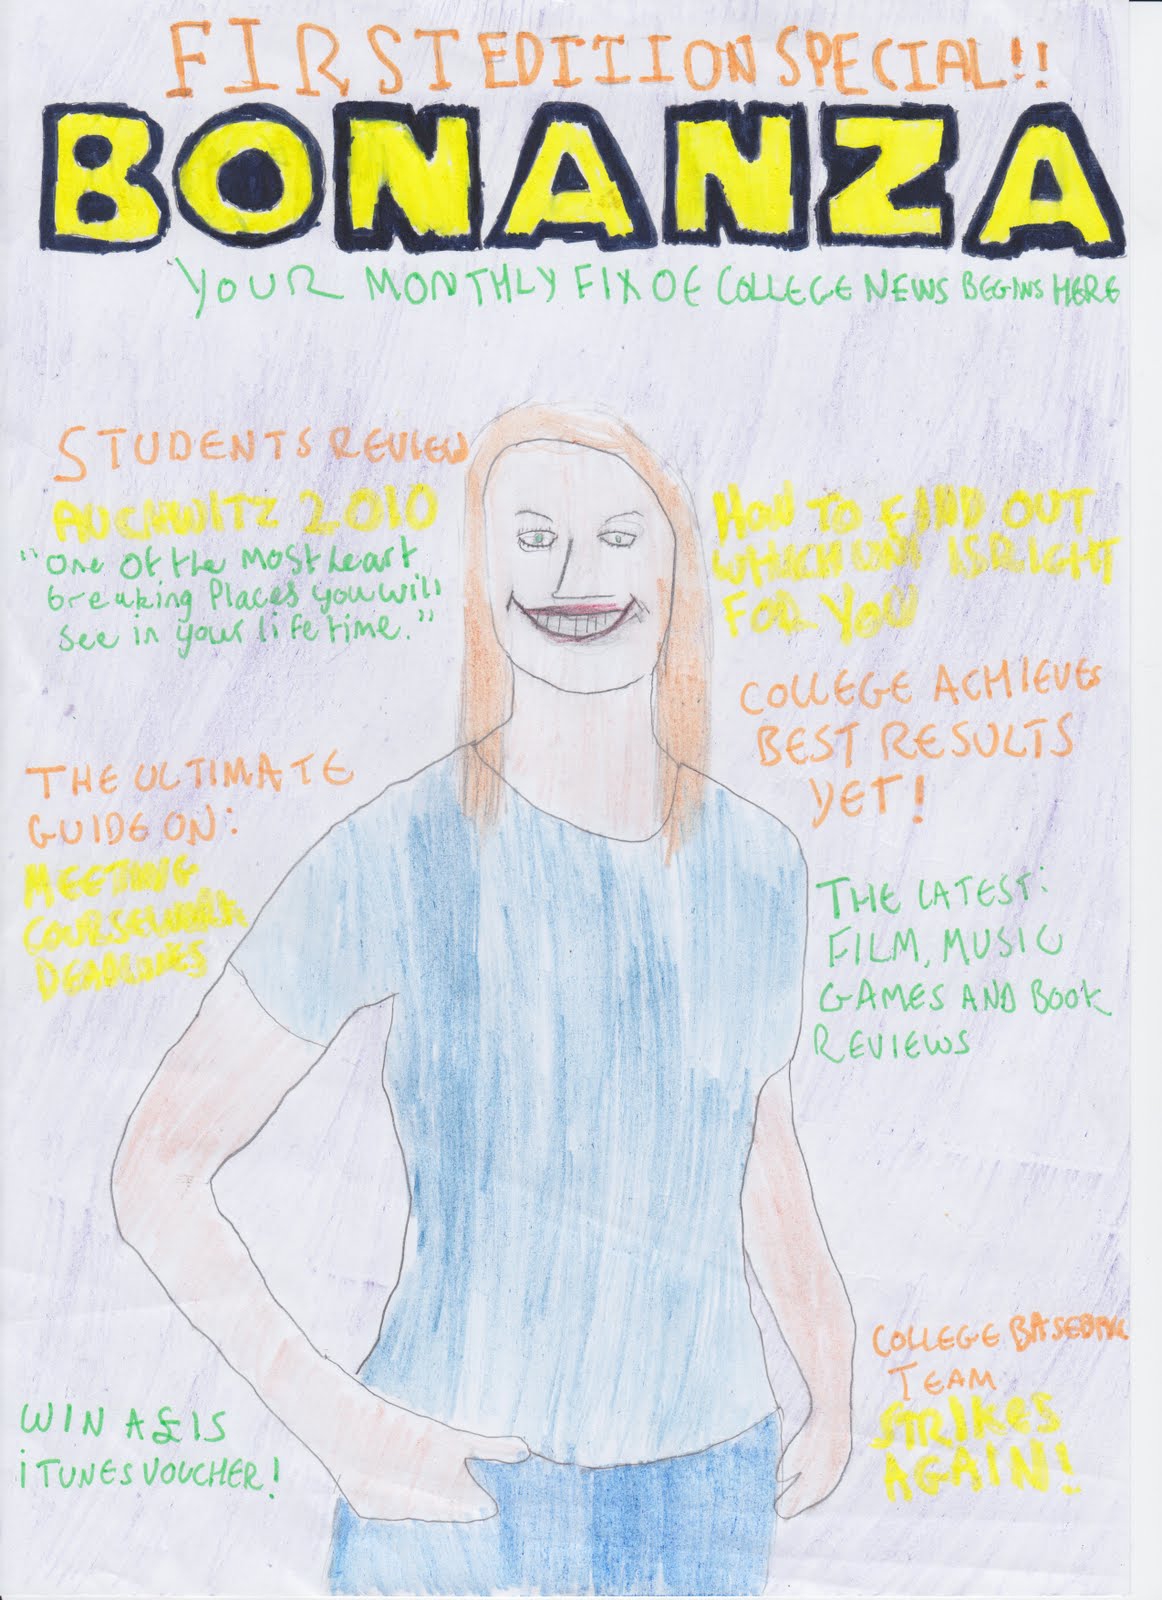 FIRST EDITIION SPECIAL!!
BONANZA
YOUR MONTHLY FIX OF COLLEGE NEWS BEGINS HERE
STUDENTS REVIEW
AUCHWITZ 2010
"One of the most heart
breaking Places you will
see in your life time."
HOW TO FIND OUT
WHICH UNI IS RIGHT
FOR YOU
COLLEGE ACHIEVES
BEST RESULTS
YET!
THE ULTIMATE
GUIDE ON:
MEETING
COURSEWORK
DEADLINES
THE LATEST:
FILM, MUSIC
GAMES AND BOOK
REVIEWS
WIN A £15
iTUNES VOUCHER!
COLLEGE BASEBALL
TEAM
STRIKES
AGAIN!